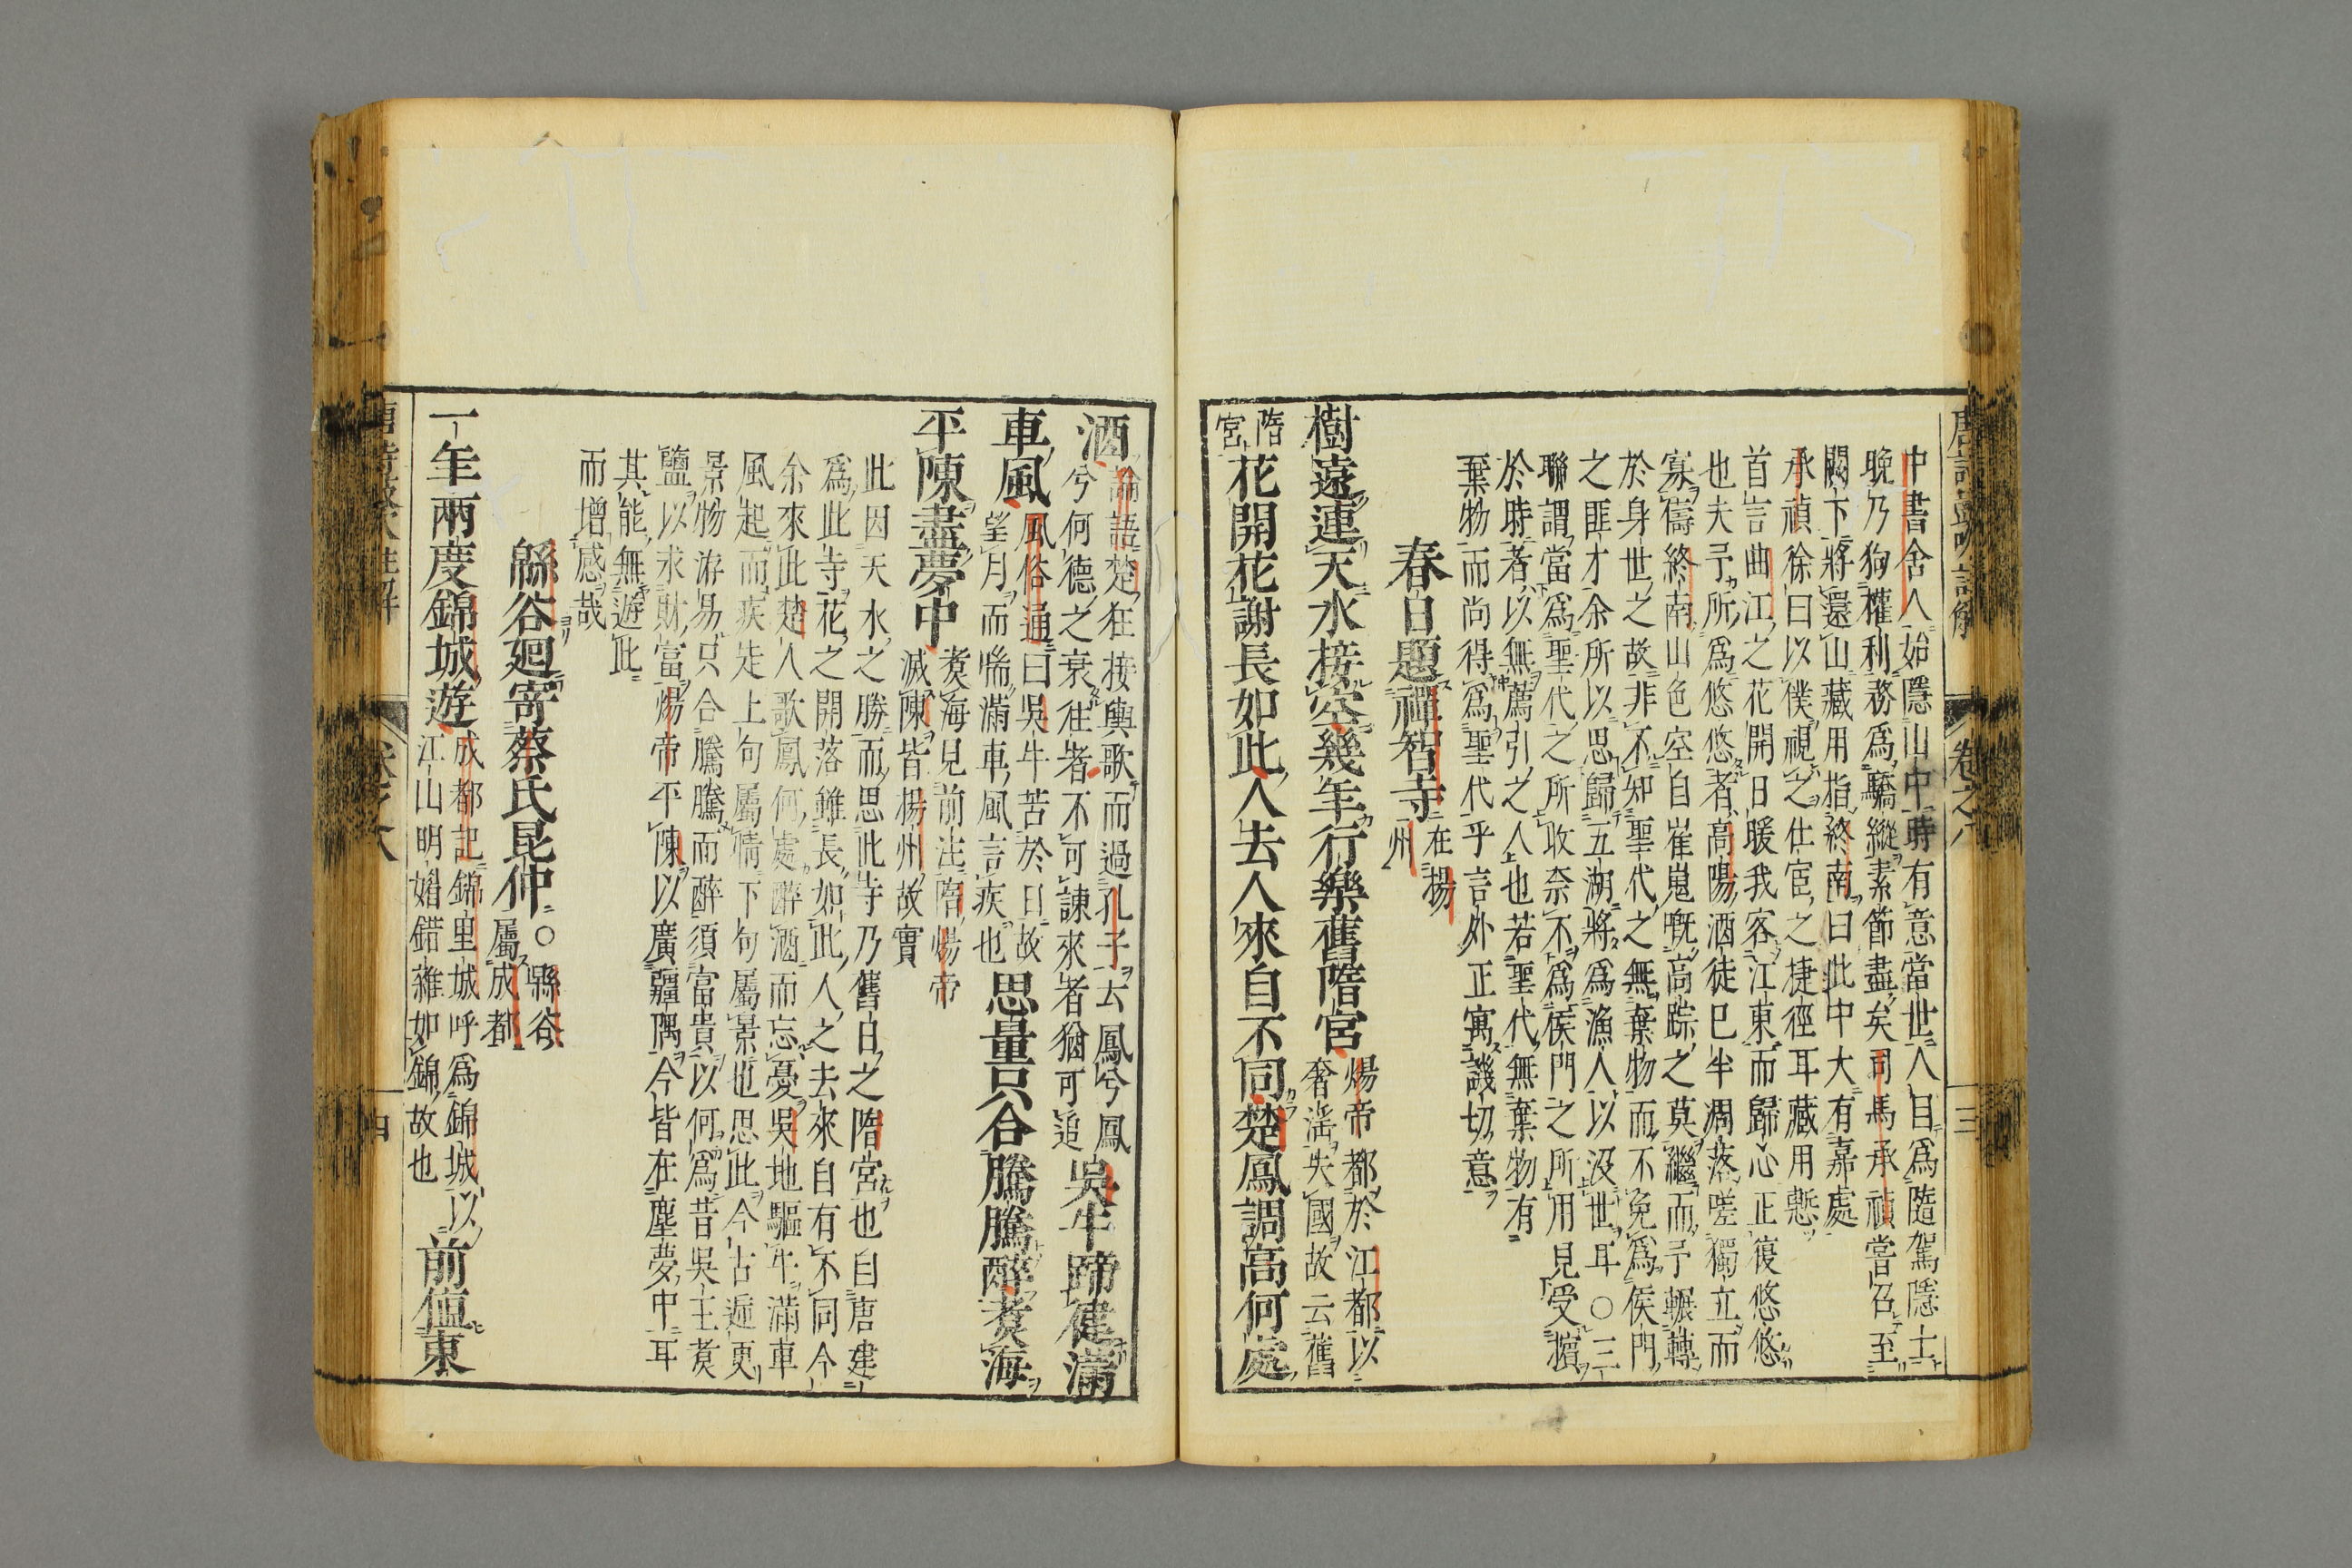 中書舍人始隱山中時有意當世人目爲隨駕隱士
晚乃狥權利務爲驕縱素節盡矣司馬承禎嘗召至
闕下將還山藏用指終南曰此中大有嘉處
承禎徐曰以僕視之仕宦之捷徑耳藏用慙
首言曲江之花開日暖我客江東而歸心正復悠悠
也夫予所爲悠悠者高陽酒徒已半凋落嗟獨立而
寡儔終南山色空自崔嵬嘅高踪之莫繼而予輾轉
於身世之故非不知聖代之無棄物而不免爲侯門
之匪才余所以思歸五湖將爲漁人以沒世耳〇三
聯謂當爲聖代之所收奈不爲侯門之所用見受擯
於時者以無薦引之人也若聖代無棄物有
棄物而尚得爲聖代乎言外正寓譏切意
春日題禪智寺
在楊
州
樹遠連天水接空幾年行樂舊隋宮
煬帝都於江都以
奢滛失國故云舊
隋
宮
花開花謝長如此人去人來自不同楚鳳調高何處
酒
論語楚狂接輿歌而過孔子云鳳兮鳳
兮何德之衰往者不可諫來者猶可追
吳牛蹄健滿
車風
風俗通曰吳牛苦於日故
望月而喘滿車風言疾也
思量只合騰騰醉煑海
平陳盡夢中
煑海見前注隋煬帝
滅陳皆楊州故實
此因天水之勝而思此寺乃舊日之隋宮也自唐建
爲此寺花之開落雖長如此人之去來自有不同今
余來此楚人歌鳳何處醉酒而忘憂吳地驅牛滿車
風起而疾走上句屬情下句屬景也思此今古遞更
景物游易只合騰騰而醉須富貴以何爲昔吳王煑
鹽以求財富煬帝平陳以廣疆隅今皆在塵夢中耳
其能無遊此
而增感哉
緜谷廻寄蔡氏昆仲
〇緜谷
屬成都
一年兩度錦城遊
成都記錦里城呼爲錦城以
江山明媚錯雜如錦故也
前値東
卷之六
四
三